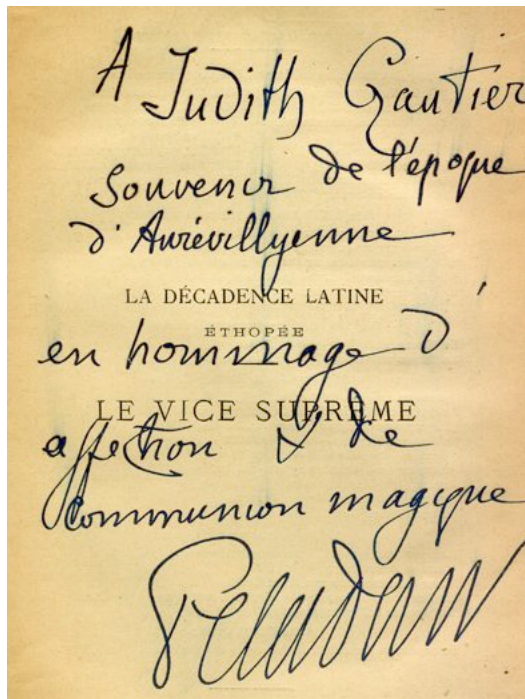 A Judith Gautier
souvenir de l'époque
d'Aurévillyenne
LA DÉCADENCE LATINE
ÉTHOPÉE
en hommage d'
LE VICE SUPRÊME
affection & de
communion magique
Peladan